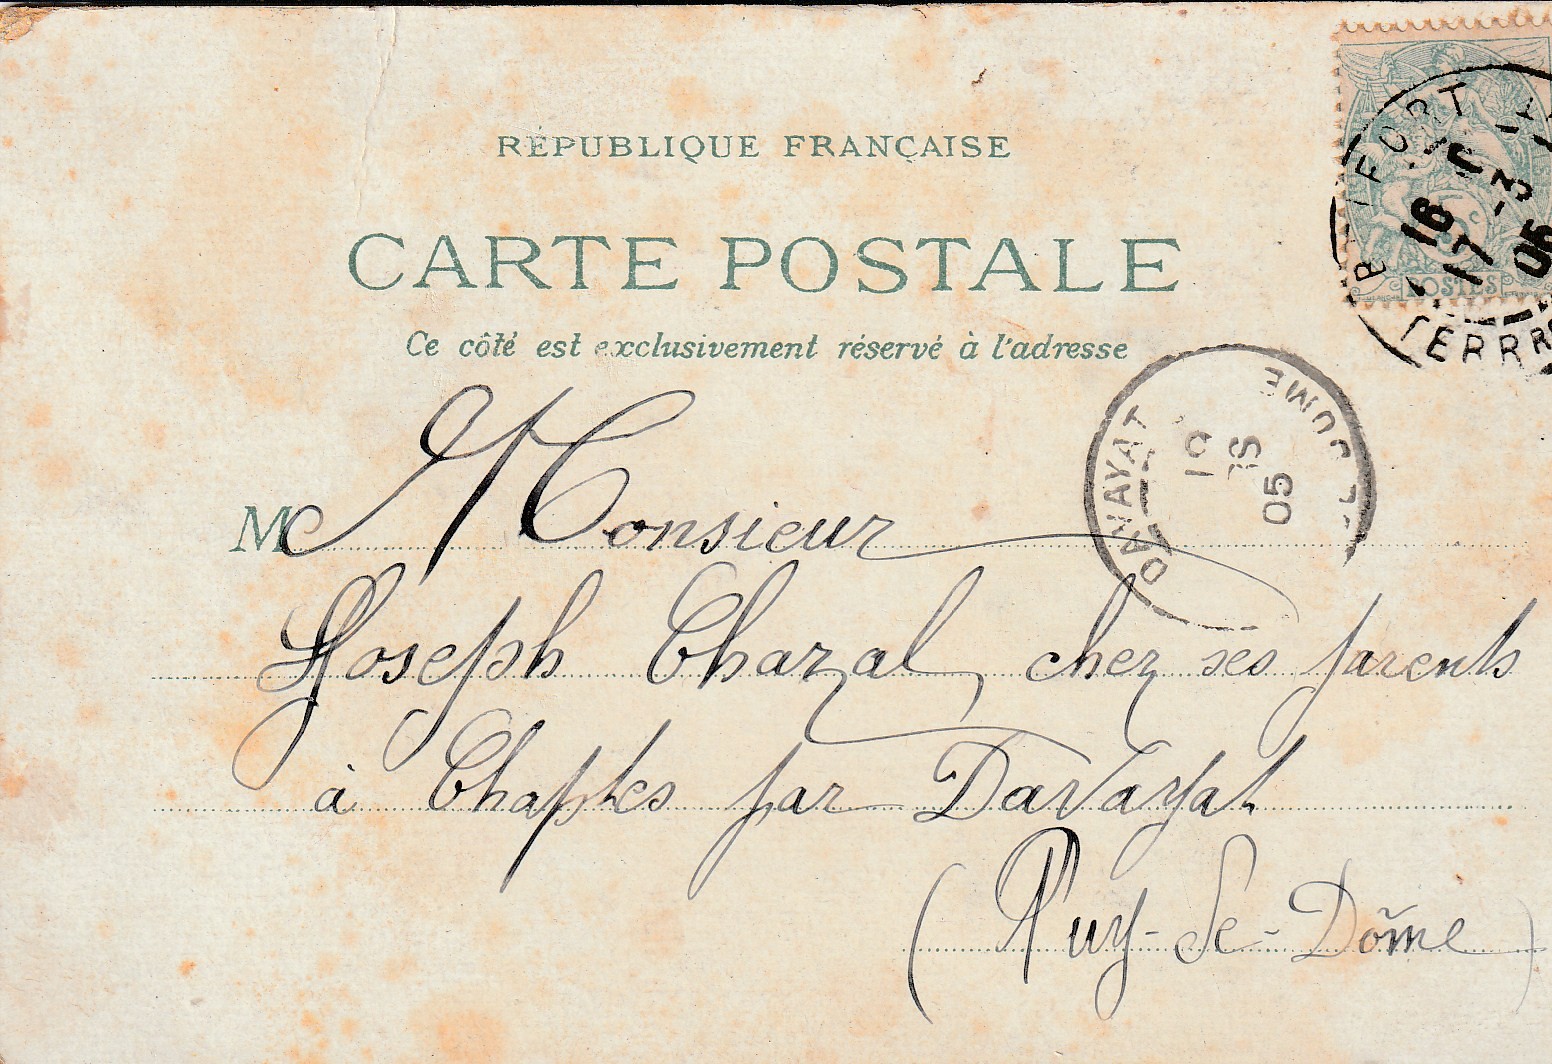 RÉPUBLIQUE FRANÇAISE
CARTE POSTALE
Ce côté est exclusivement réservé à l'adresse
POSTES
FORT
16
17 -3
05
TERRE
M Monsieur
Joseph Chazal, chez ses parents
à Chaptes par Davayat
(Puy-de-Dôme)
DAVAYAT
DOME
19
05